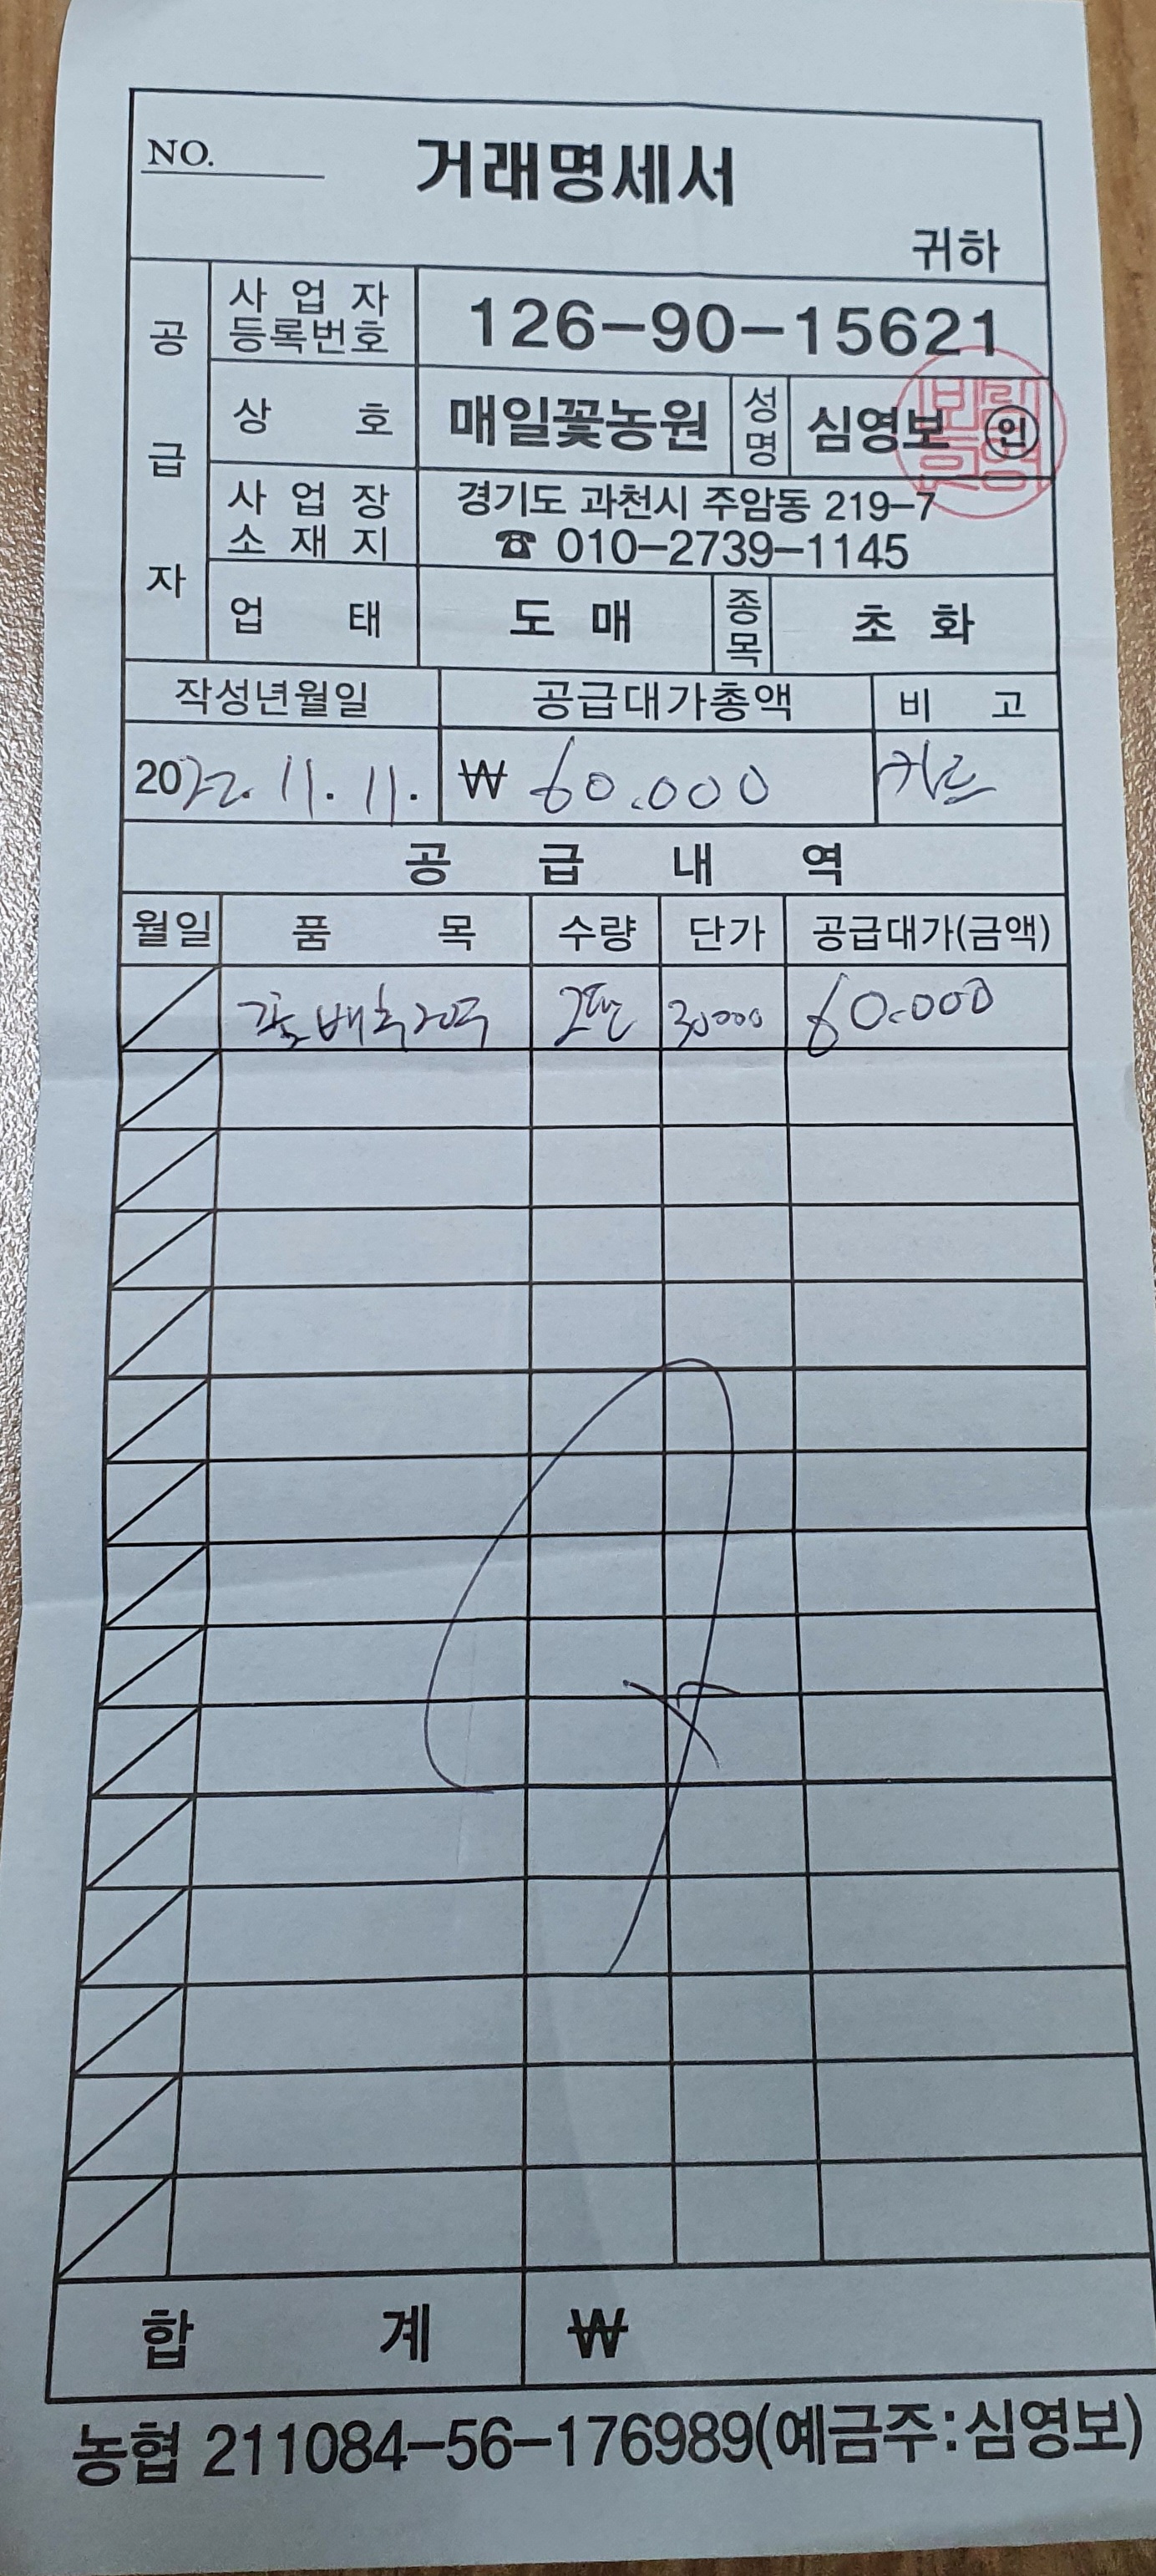 NO.
거래명세서
귀하
공급자
사업자등록번호 126-90-15621
상호 매일꽃농원 성명 심영보 인
사업장소재지 경기도 과천시 주암동 219-7
☎ 010-2739-1145
업태 도매 종목 초화
작성년월일 공급대가총액 비고
2022. 11. 11. ₩ 60.000 카드
공급내역
월일 품목 수량 단가 공급대가(금액)
꽃배추 2판 30000 60.000
합계 ₩
농협 211084-56-176989(예금주:심영보)